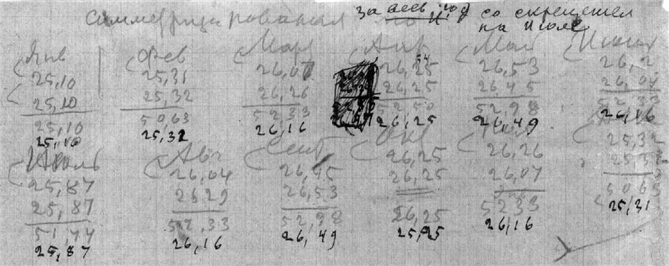 за весь год со скрещен
на Июле
Янв
25,10
25,10
25,10
25,10
Фев
25,31
25,32
50,63
25,32
Март
26,07
26,26
52,33
26,16
Апр
26,25
26,25
52,50
26,25
Май
26,53
26,45
52,98
26,49
Июнь
26,2
26,04
52,33
26,16
Июль
25,87
25,87
51,74
25,87
Авг
26,04
26,29
52,33
26,16
Сент
26,45
26,53
52,98
26,49
Окт
26,25
26,25
26,25
26,26
26,07
52,33
26,16
25,32
25,31
50,63
25,31